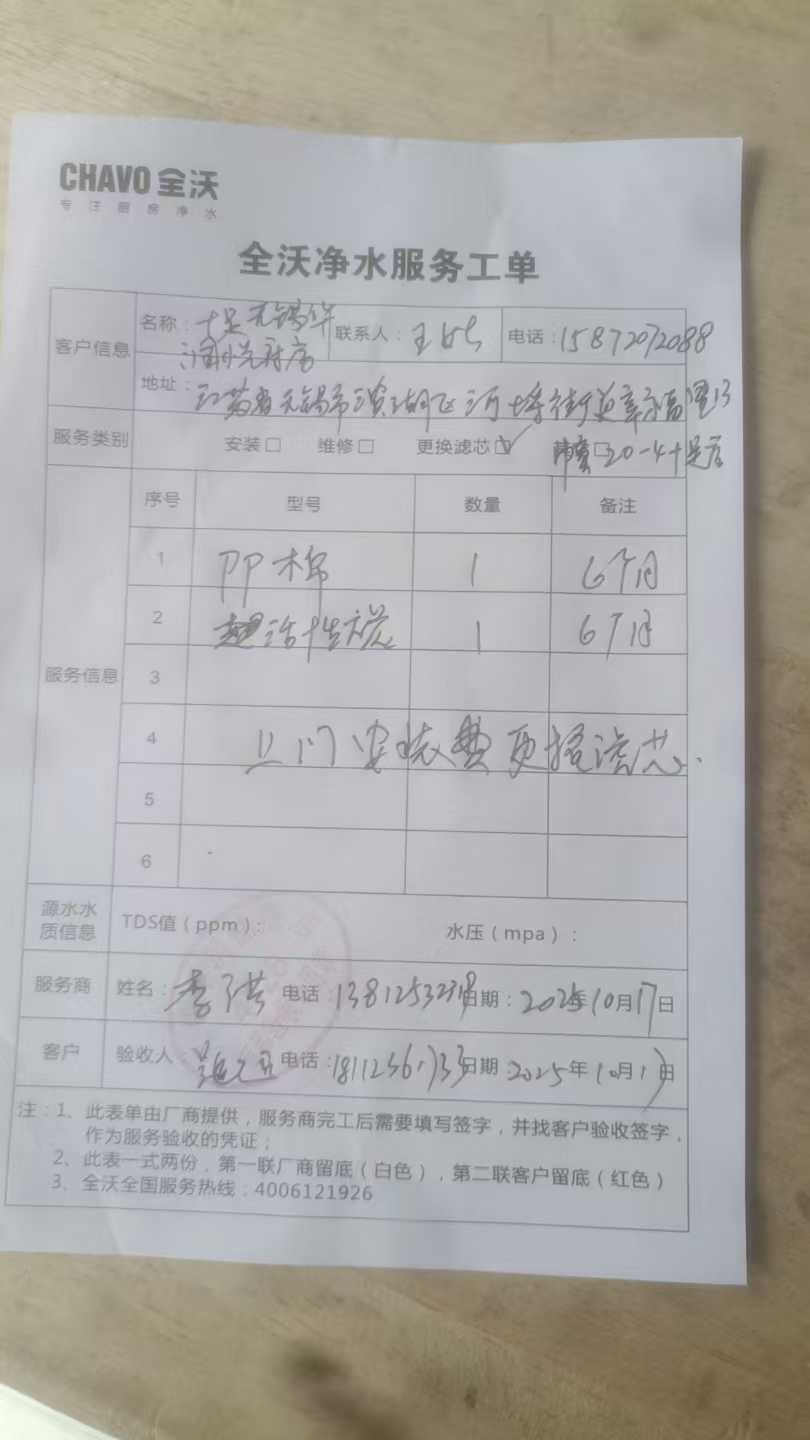 CHAVO 全沃
专注厨房净水
全沃净水服务工单
客户信息
名称：十足无锡华润悦府店 联系人：王 电话：15872072088
地址：江苏省无锡市滨湖区河埒街道 13
20-4十足店
服务类别 安装□ 维修□ 更换滤芯☑
服务信息
序号 型号 数量 备注
1 PP棉 1 6个月
2 活性炭 1 6个月
3
4 上门安装费更换滤芯.
5
6
源水水质信息 TDS值（ppm）： 水压（mpa）：
服务商 姓名：李洪 电话： 日期：2025年10月17日
客户 验收人： 电话：18112561733 日期：2025年10月17日
注：1、此表单由厂商提供，服务商完工后需要填写签字，并找客户验收签字，
作为服务验收的凭证；
2、此表一式两份，第一联厂商留底（白色），第二联客户留底（红色）
3、全沃全国服务热线：4006121926